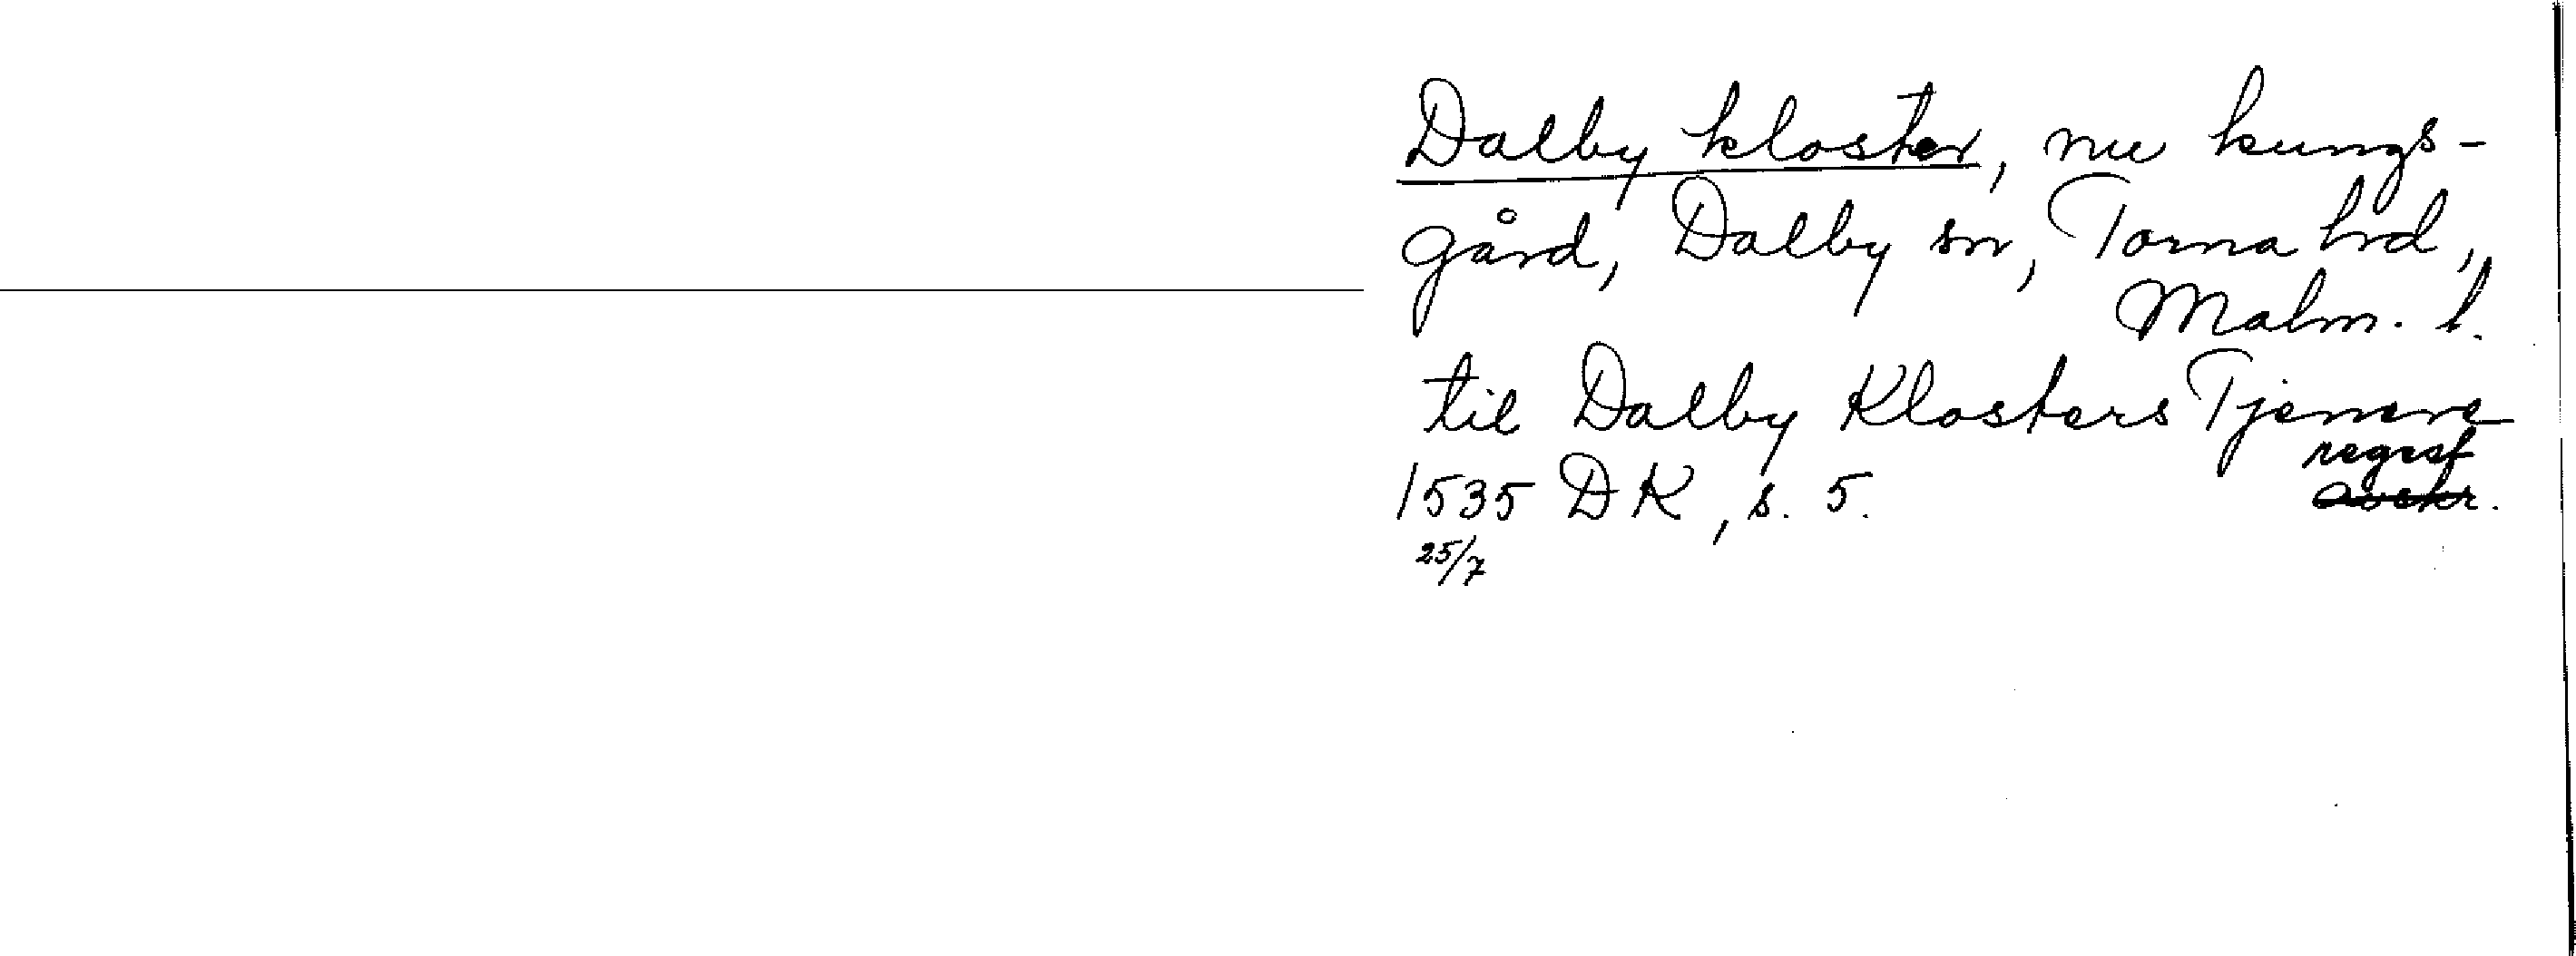 Dalby kloster, nu kungs-
gård, Dalby sn, Torna hrd,
Malm. l.
til Dalby Klosters Tjenere
regest
1535 DK, s. 5. avskr.
25/7